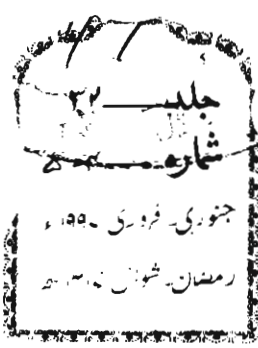 جلد ۳۲
شمارہ
جنوری۔ فروری ۱۹۹ ء
رمضان۔ شوال